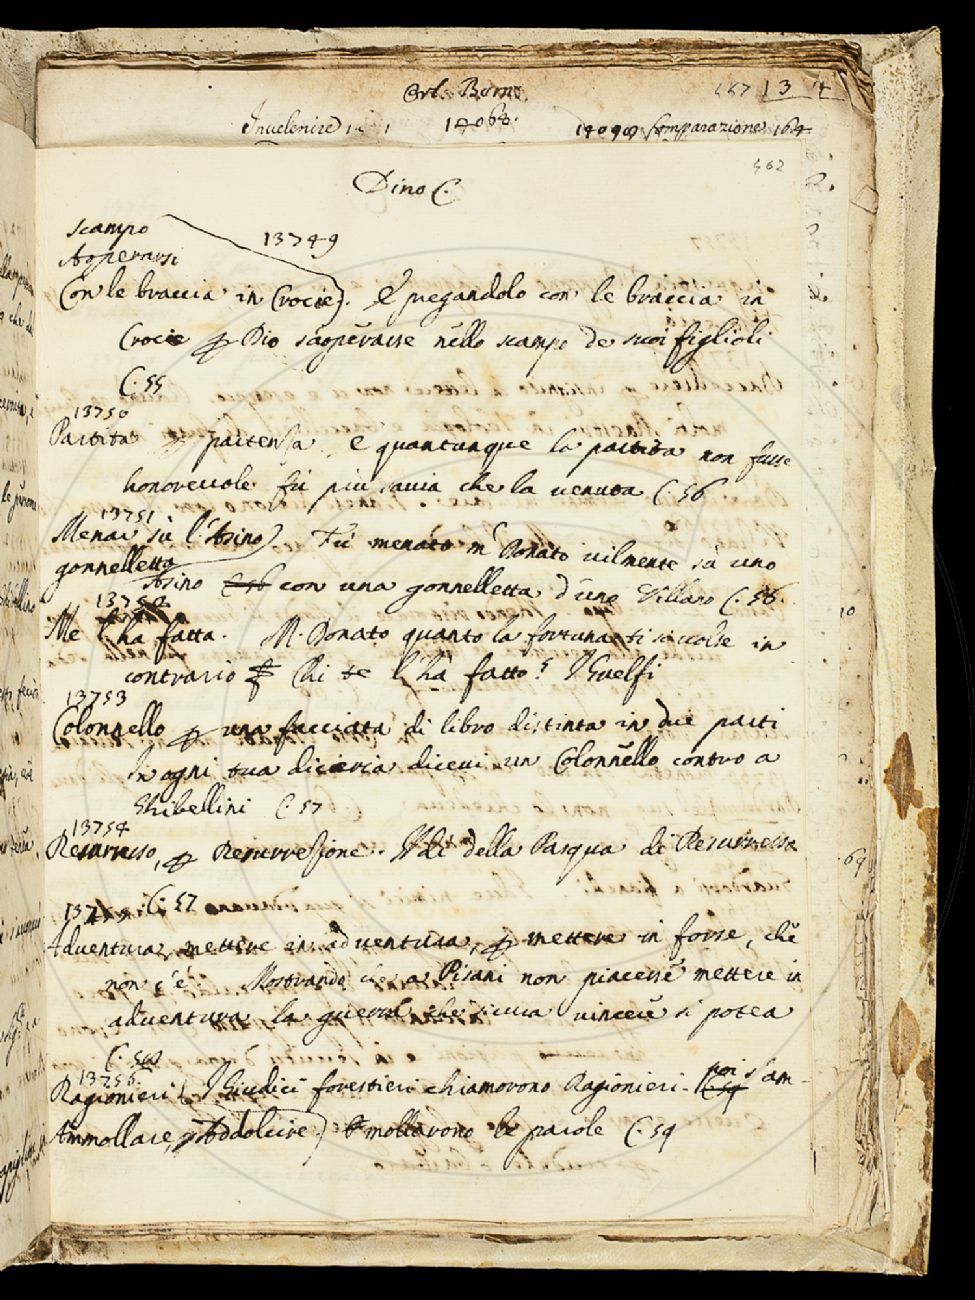 Orl. Born.
187 13 4
Invelenire 1 1 14068. 14098 Comparazione 164
562
Dino C.
scampo
Aoperarsi
13749
Con le braccia in Crocie). E pregandolo con le braccia in
Crocie p Dio s'aoperasse nello scampo de suoi figlioli
C. 55
13750
Partita p partenza e quantunque la partita non fusse
honorevole fù più savia che la venuta C 56
13751
Menar sù l'Asino). Fu menato m Donato vilmente sù uno
gonnelletta
Asino con una gonnelletta d'uno Villano C 56.
13752
Me l'ha fatta. M. Donato quanto la fortuna ti si volse in
contrario Chi te l'hà fatto? I Guelfi
13753
Colonnello p una facciata di libro distinta in due parti
In ogni tua diceria dicevi un Colonnello contro a
Ghibellini C 57
13754
Resurresso, p Resurressione. Il dì della Pasqua di Resurresso
C. 57
Adventura, mettere in adventura, p mettere in forse, che
non c'è. Mostrando che a Pisani non piacesse mettere in
adventura la guerra che sicura vincere si potea
C.
13756
Ragionieri ( I Giudici forestieri chiamorono Ragionieri. poi s'am-
C 59
Ammollare, p Addolcire.) mollarono le parole C. 59
10
69